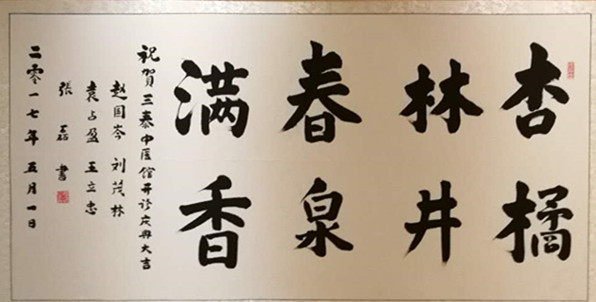 杏林春满
橘井泉香
祝賀三泰中医馆开诊庆典大吉
赵国岑 刘茂林
袁占盈 王立忠
张磊 书
二零一七年五月一日